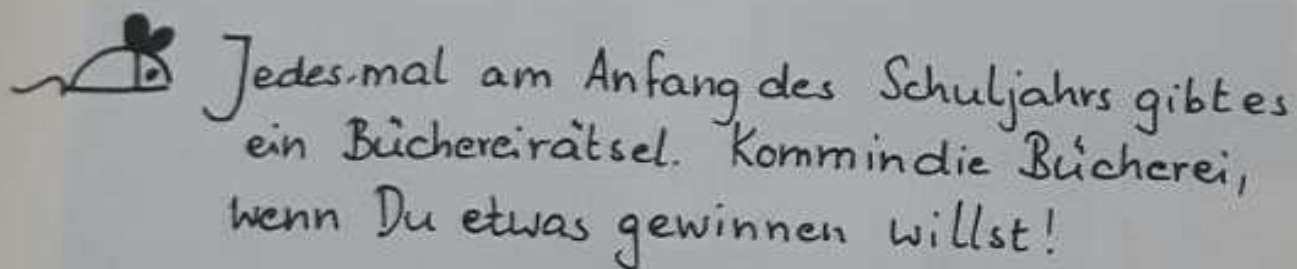 Jedesmal am Anfang des Schuljahrs gibt es
ein Büchereirätsel. Komm in die Bücherei,
wenn Du etwas gewinnen willst!